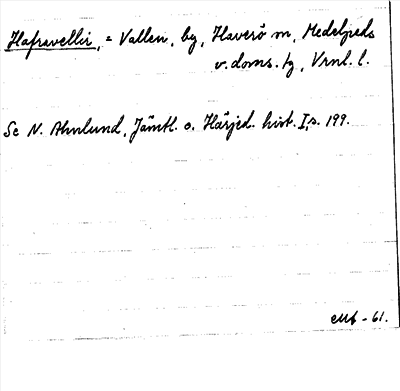 Hafravellir, = Vallen, by, Haverö sn, Medelpads
v. doms. tg, Vrnl. l.
Se N. Ahnlund, Jämtl. o. Härjed. hist. I, s. 199.
-61.